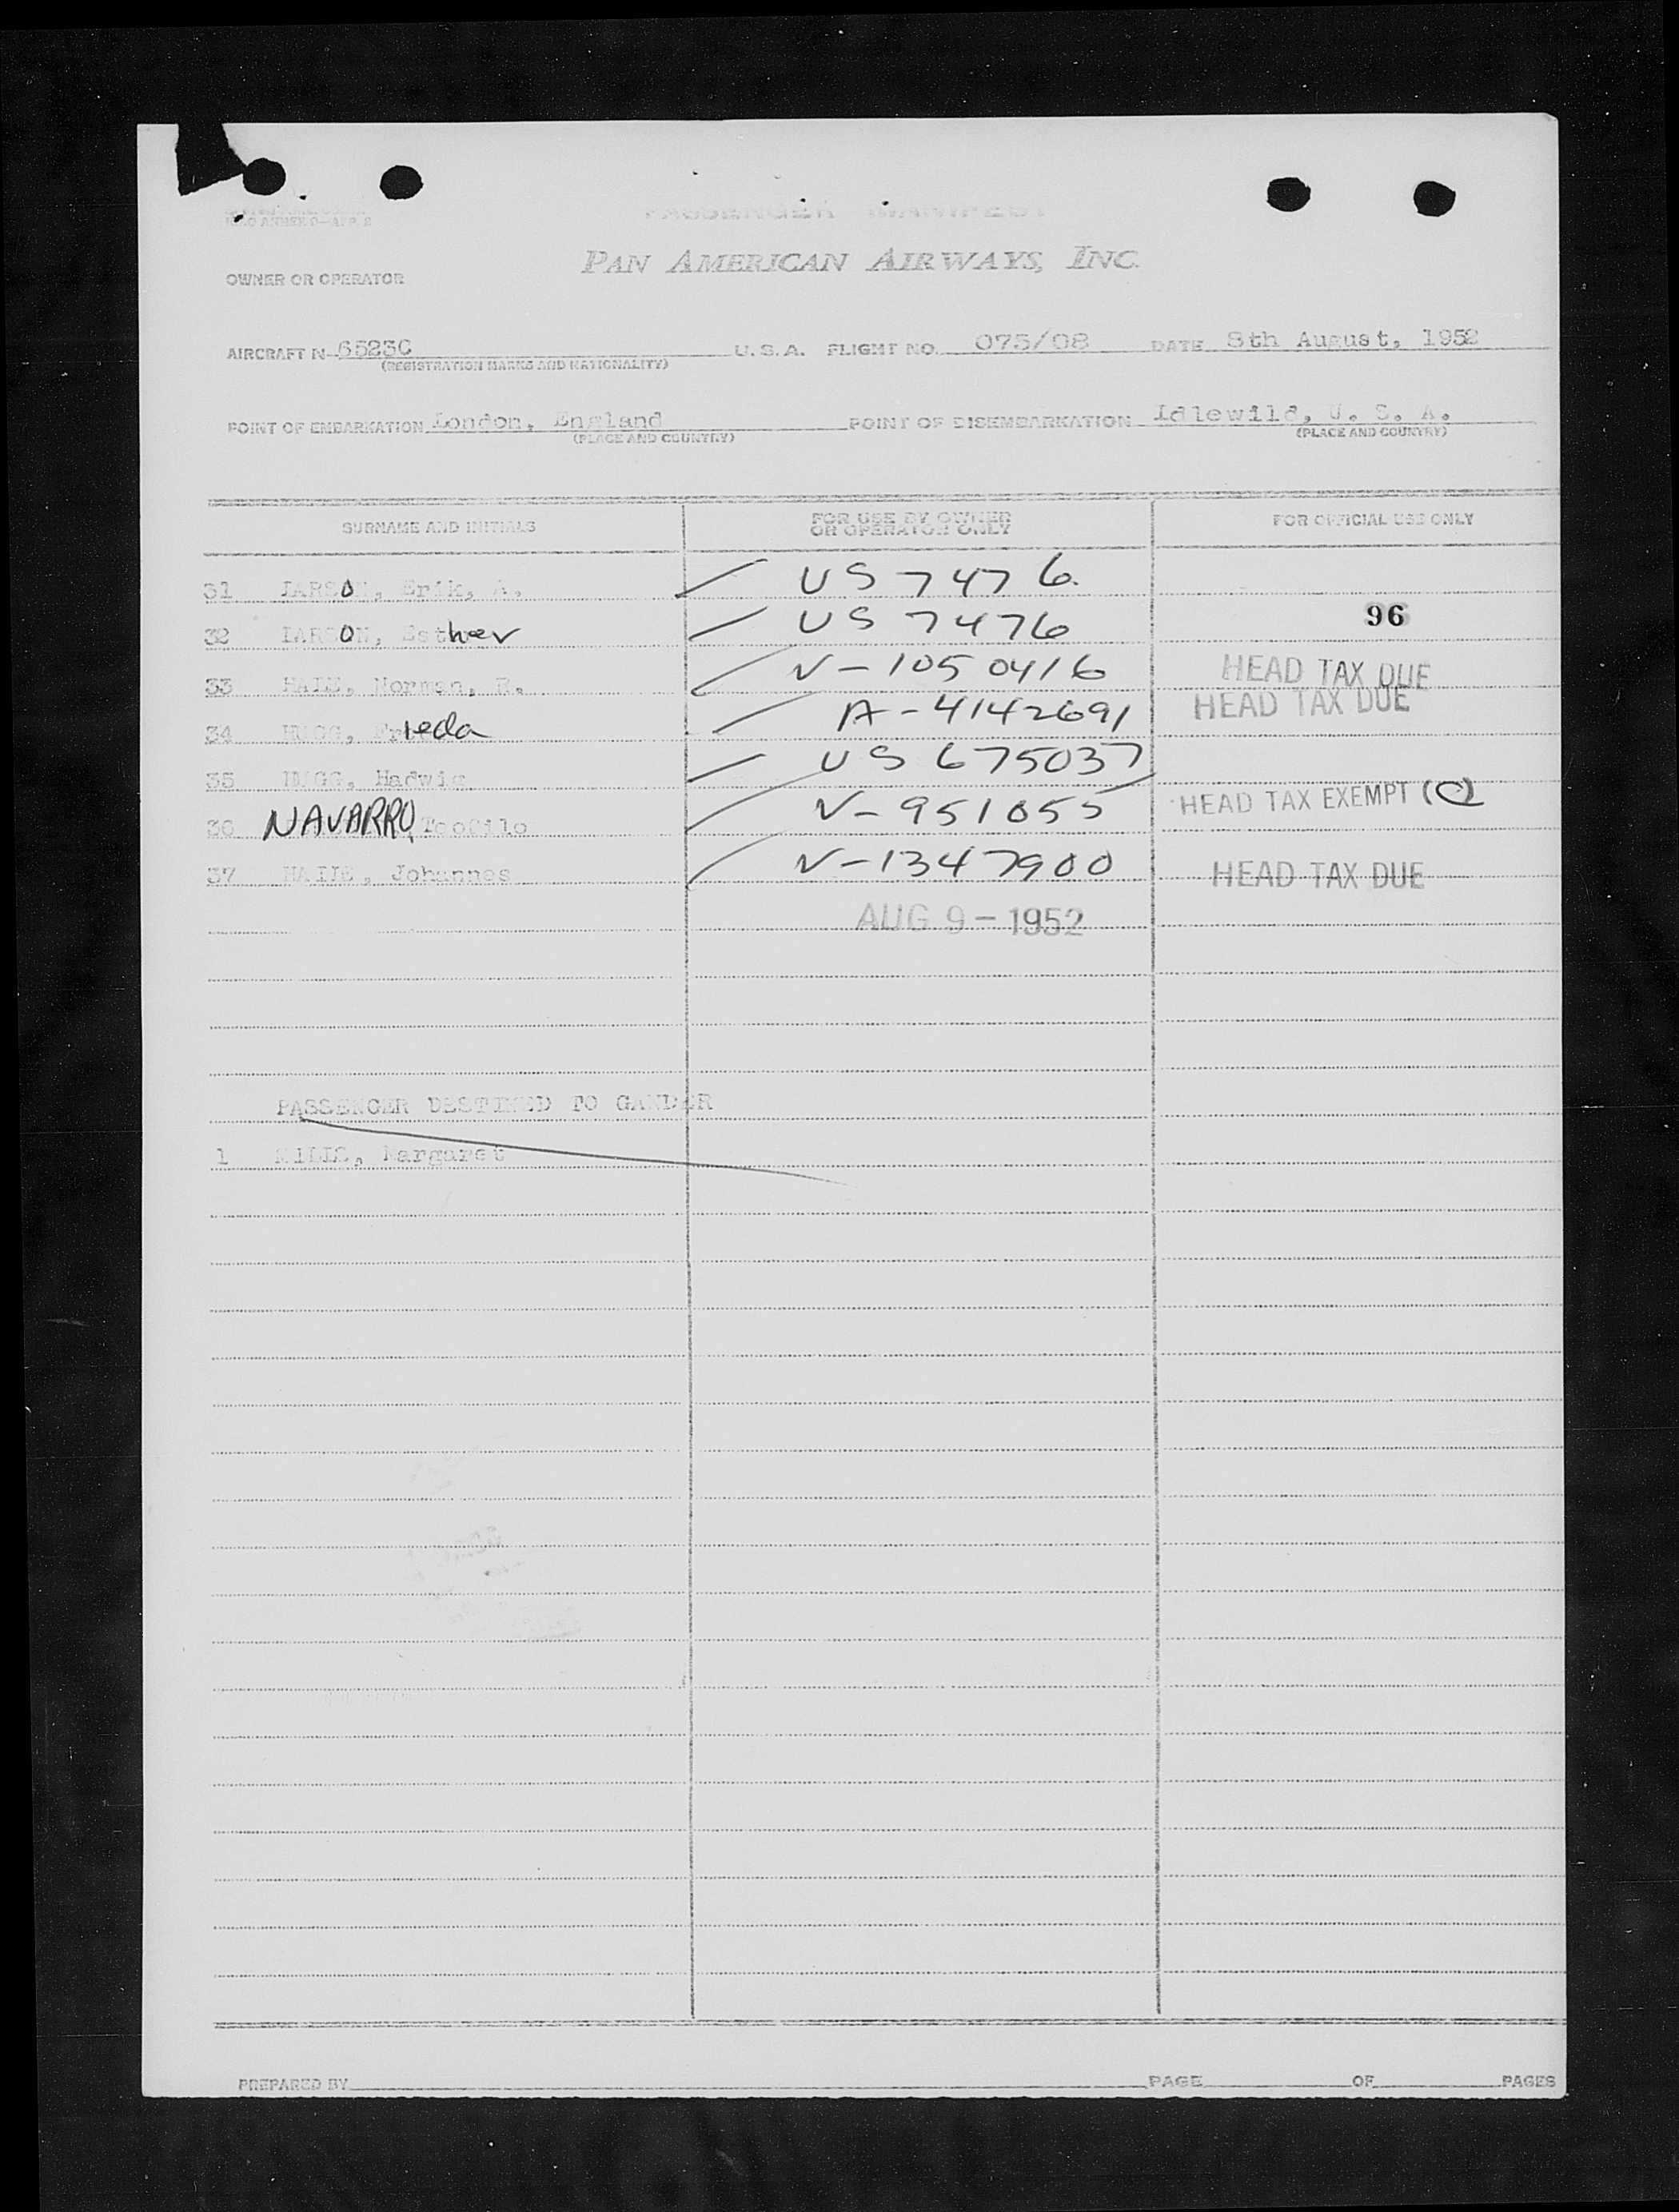 ICAO ANNEX 9—APP. 2
PASSENGER MANIFEST
OWNER OR OPERATOR PAN AMERICAN AIRWAYS, INC.
AIRCRAFT N 6523C U.S.A. FLIGHT NO. 075/08 DATE 8th August, 1952
(REGISTRATION MARKS AND NATIONALITY)
POINT OF EMBARKATION London, England POINT OF DISEMBARKATION Idlewild, U. S. A.
(PLACE AND COUNTRY) (PLACE AND COUNTRY)
SURNAME AND INITIALS FOR USE BY OWNER OR OPERATOR ONLY FOR OFFICIAL USE ONLY
31 LARSON, Erik, A. US 7476
32 LARSON, Esther US 7476 96
33 HALE, Norman, R. V-1050416 HEAD TAX DUE
34 HUGG, Frieda A-4142691 HEAD TAX DUE
35 HUGG, Hadwig US 675037
36 NAVARRO, Teofilo V-951055 HEAD TAX EXEMPT (C)
37 Johannes V-1347900 HEAD TAX DUE
AUG 9-1952
PASSENGER DESTINED TO GANDER
1 Margaret
PREPARED BY PAGE OF PAGES